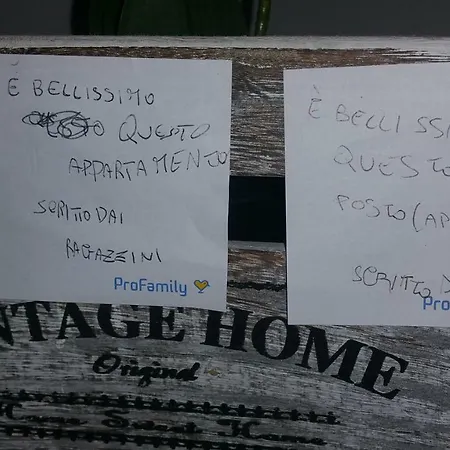 È BELLISSIMO
QUESTO
APPARTAMENTO
SCRITTO DAI
RAGAZZINI
ProFamily
È BELLISSI
QUESTO
POSTO (AP
SCRITTO D
Pro
NTAGE HOME
Original
Home Sweet Home